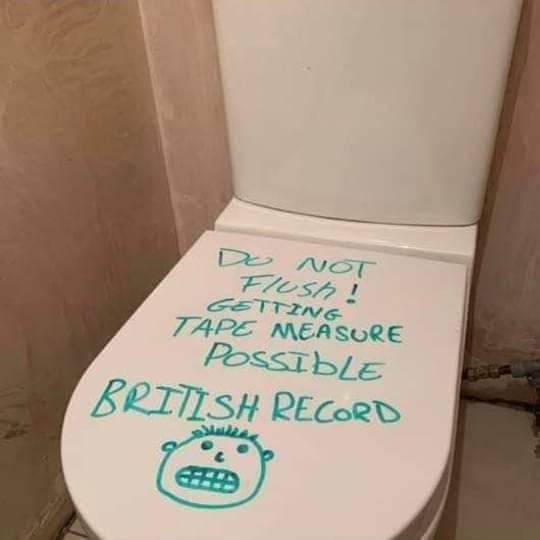 DO NOT
Flush!
GETTING
TAPE MEASURE
POSSIbLE
BRITISH RECORD